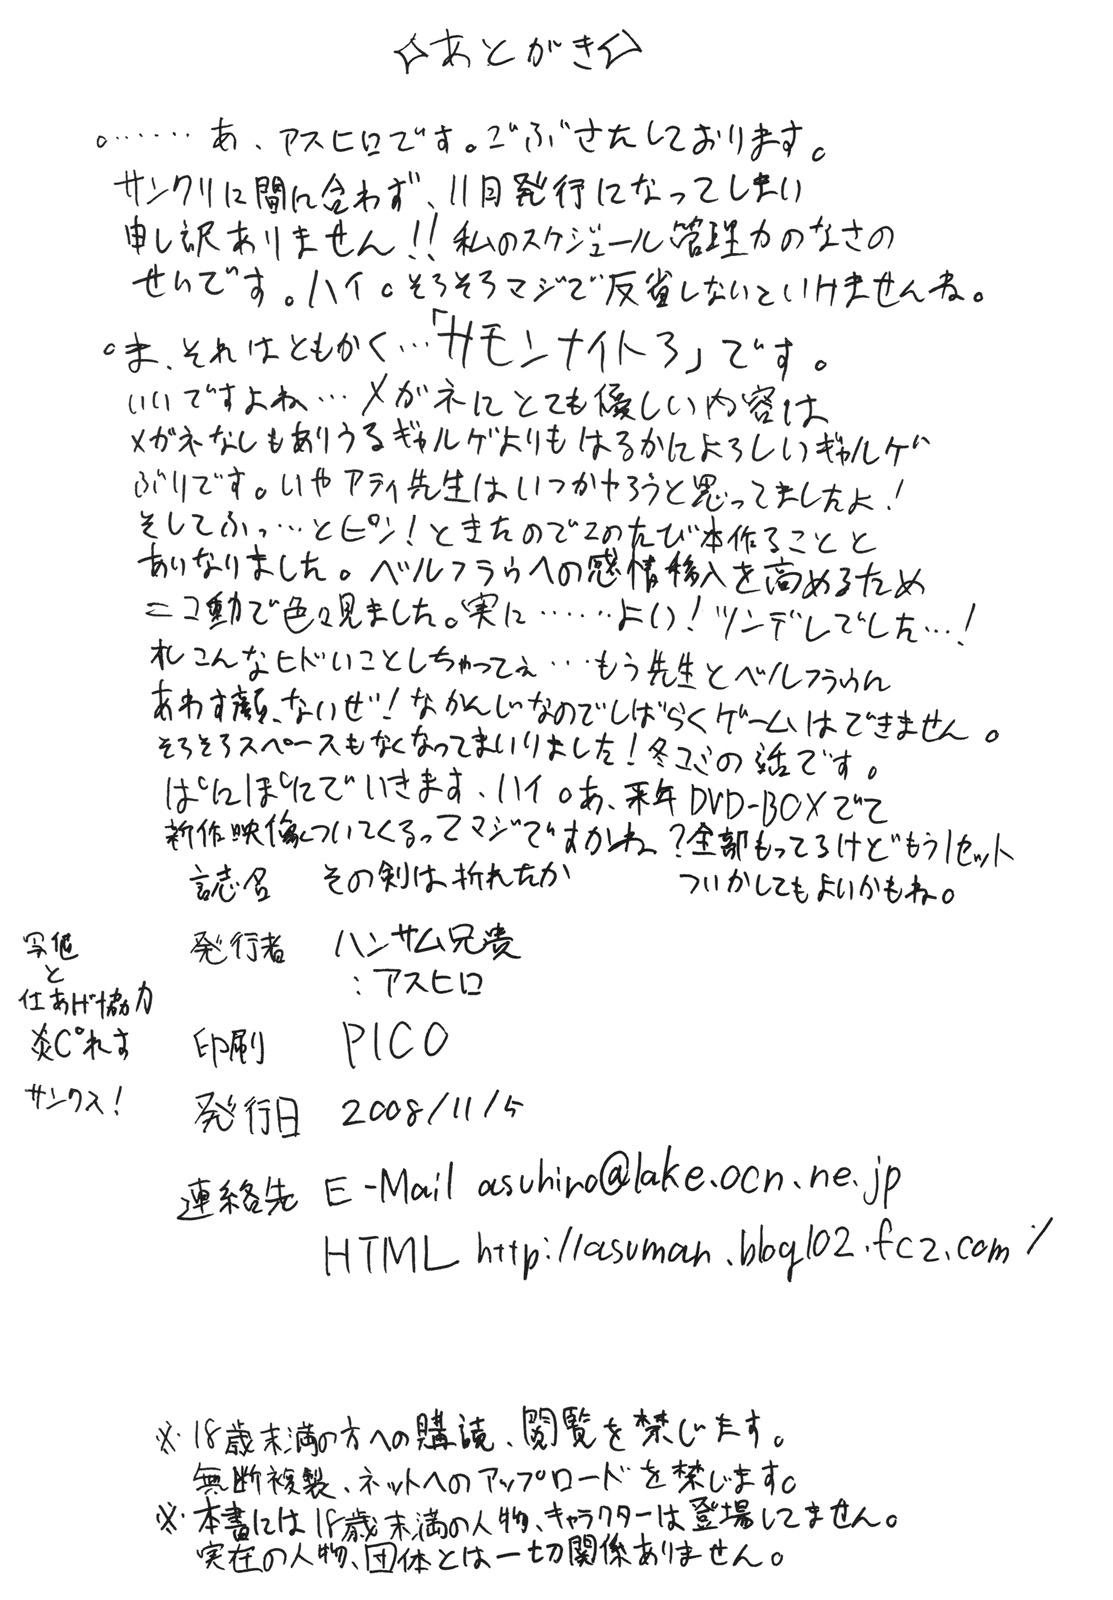 ✧あとがき✧
○……あ、アスヒロです。ごぶさたしております。
サンクリに間に合わず、11月発行になってしまい
申し訳ありません!!私のスケジュール管理力のなさの
せいです。ハイ。そろそろマジで反省しないといけませんね。
○ま、それはともかく…「サモンナイト3」です。
いいですよね…メガネにとても優しい内容は
メガネなしもありうるギャルゲよりもはるかによろしいギャルゲ
ぶりです。いやアティ先生はいつかやろうと思ってましたよ!
そしてふっ…とピン!ときたのでこのたび本作ることと
ありなりました。ベルフラウへの感情移入を高めるため
ニコ動で色々見ました。実に……よい!ツンデレでした…!
こんなヒドいことしちゃってぇ…もう先生とベルフラウに
あわす顔、ないぜ!なかんじなのでしばらくゲームはできません。
そろそろスペースもなくなってまいりました!冬コミの話です。
ぱにぽにでいきます、ハイ。あ、来年DVD-BOXでて
新作映像ついてくるってマジですかね?全部もってるけどもう1セット
ついかしてもよいかもね。
誌名 その剣は折れたか
発行者 ハンサム兄貴
:アスヒロ
写植
と
仕あげ協力
炎ぴれす
サンクス!
印刷 PICO
発行日 2008/11/5
連絡先 E-Mail asuhiro@lake.ocn.ne.jp
HTML http://asuman.blog102.fc2.com/
※18歳未満の方への購読、閲覧を禁じます。
無断複製、ネットへのアップロードを禁じます。
※本書には18歳未満の人物、キャラクターは登場してません。
実在の人物、団体とは一切関係ありません。